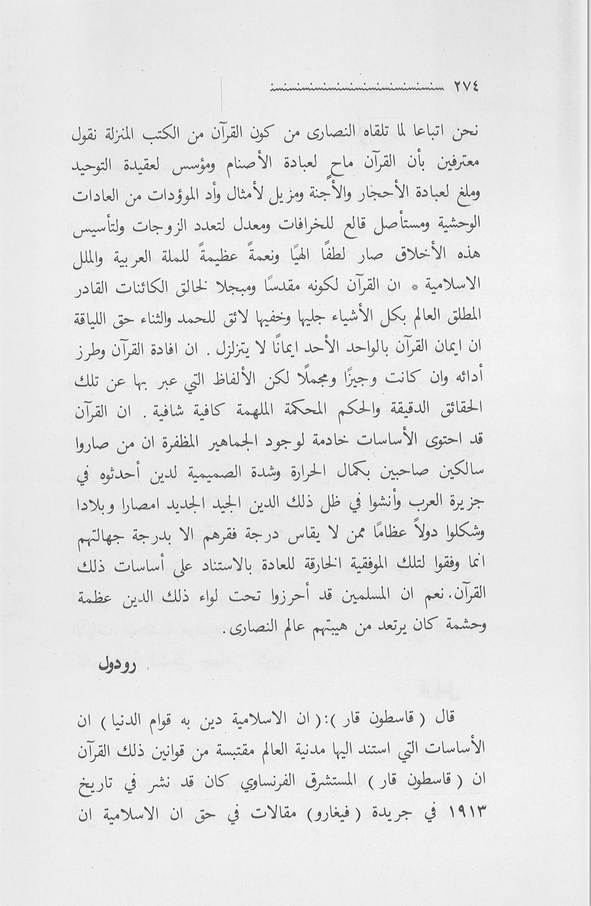 ٢٧٤
نحن اتباعا لما تلقاه النصارى من كون القرآن من الكتب المنزلة نقول
معترفين بأن القرآن ماح لعبادة الأصنام ومؤسس لعقيدة التوحيد
وملغ لعبادة الأحجار والأجنة ومزيل لأمثال وأد الموؤدات من العادات
الوحشية ومستأصل قالع للخرافات ومعدل لتعدد الزوجات ولتأسيس
هذه الأخلاق صار لطفًا الهيًا ونعمةً عظيمةً للملة العربية والملل
الاسلامية * ان القرآن لكونه مقدسًا ومبجلا لخالق الكائنات القادر
المطلق العالم بكل الأشياء جليها وخفيها لائق للحمد والثناء حق اللياقة
ان ايمان القرآن بالواحد الأحد ايمانًا لا يتزلزل . ان افادة القرآن وطرز
أدائه وان كانت وجيزًا ومجملًا لكن الألفاظ التي عبر بها عن تلك
الحقائق الدقيقة والحكم المحكمة الملهمة كافية شافية . ان القرآن
قد احتوى الأساسات خادمة لوجود الجماهير المظفرة ان من صاروا
سالكين صاحبين بكمال الحرارة وشدة الصميمية لدين أحدثوه في
جزيرة العرب وأنشوا في ظل ذلك الدين الجيد الجديد امصارا وبلادا
وشكلوا دولاً عظامًا ممن لا يقاس درجة فقرهم الا بدرجة جهالتهم
انما وفقوا لتلك الموفقية الخارقة للعادة بالاستناد على أساسات ذلك
القرآن. نعم ان المسلمين قد أحرزوا تحت لواء ذلك الدين عظمة
وحشمة كان يرتعد من هيبتهم عالم النصارى.
رودول .
قال ( قاسطون قار ):( ان الاسلامية دين به قوام الدنيا ) ان
الأساسات التي استند اليها مدنية العالم مقتبسة من قوانين ذلك القرآن
ان ( قاسطون قار ) المستشرق الفرنساوي كان قد نشر في تاريخ
١٩١٣ في جريدة ( فيغارو) مقالات في حق ان الاسلامية ان